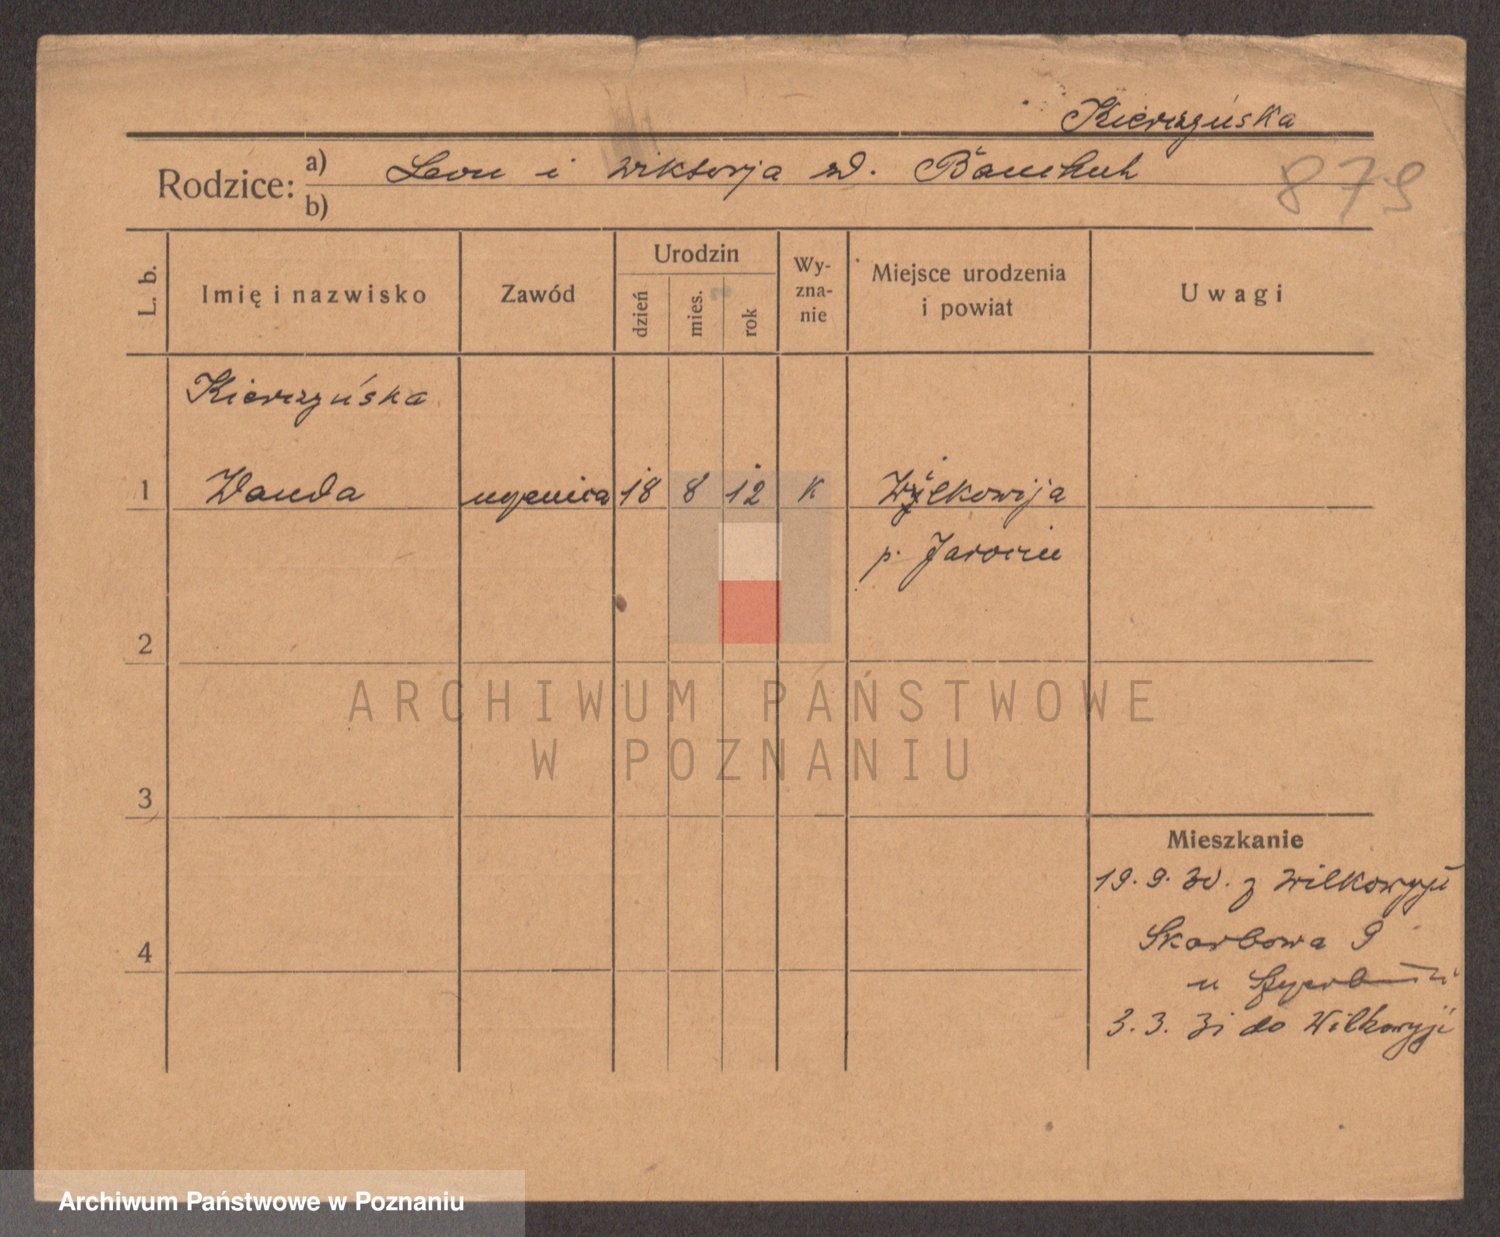 Kierzyńska
Rodzice: a) Leon i Wiktorja zd. Bamhuh
b)
879
L. b.
Imię i nazwisko
Zawód
Urodzin
dzień
mies.
rok
Wy-
zna-
nie
Miejsce urodzenia
i powiat
Uwagi
Kierzyńska
1 Wanda uczenica 18 8 12 K Wilkowija
p. Jarocin
2
3
4
Mieszkanie
19. 9. 30. z Wilkowyji
Skarbowa 9
u
3. 3. 31 do Wilkowyji
ARCHIWUM PAŃSTWOWE
W POZNANIU
Archiwum Państwowe w Poznaniu